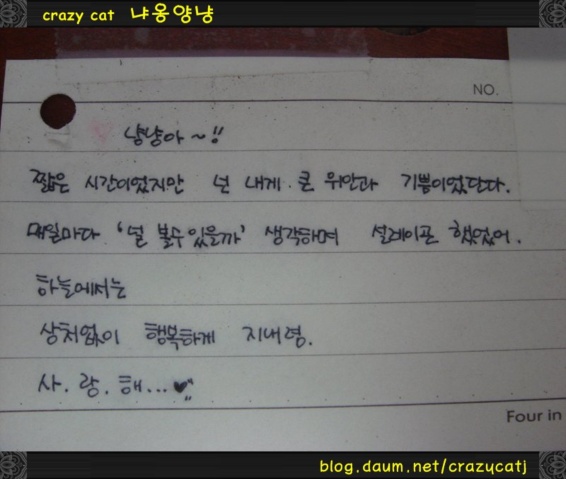 crazy cat 냐옹양냥
NO.
냥냥아~!!
짧은 시간이었지만 넌 내게 큰 위안과 기쁨이었단다.
매일마다 '널 볼수있을까' 생각하며 설레이곤 했었어.
하늘에서는
상처없이 행복하게 지내렴.
사.랑.해...♥
Four in
blog.daum.net/crazycatj